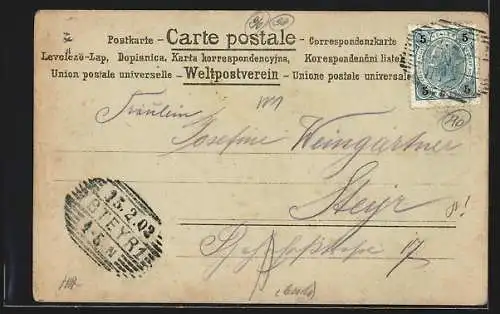 Postkarte – Carte postale – Correspondenzkarte
Levelező-Lap, Dopisnica, Karta korrespondencyjna, Korespondenční listek
Union postale universelle – Weltpostverein – Unione postale universale
5 5
5 5
Fräulein
Josefine Weingartner
Steyr
17
13.2.02
STEYR 1